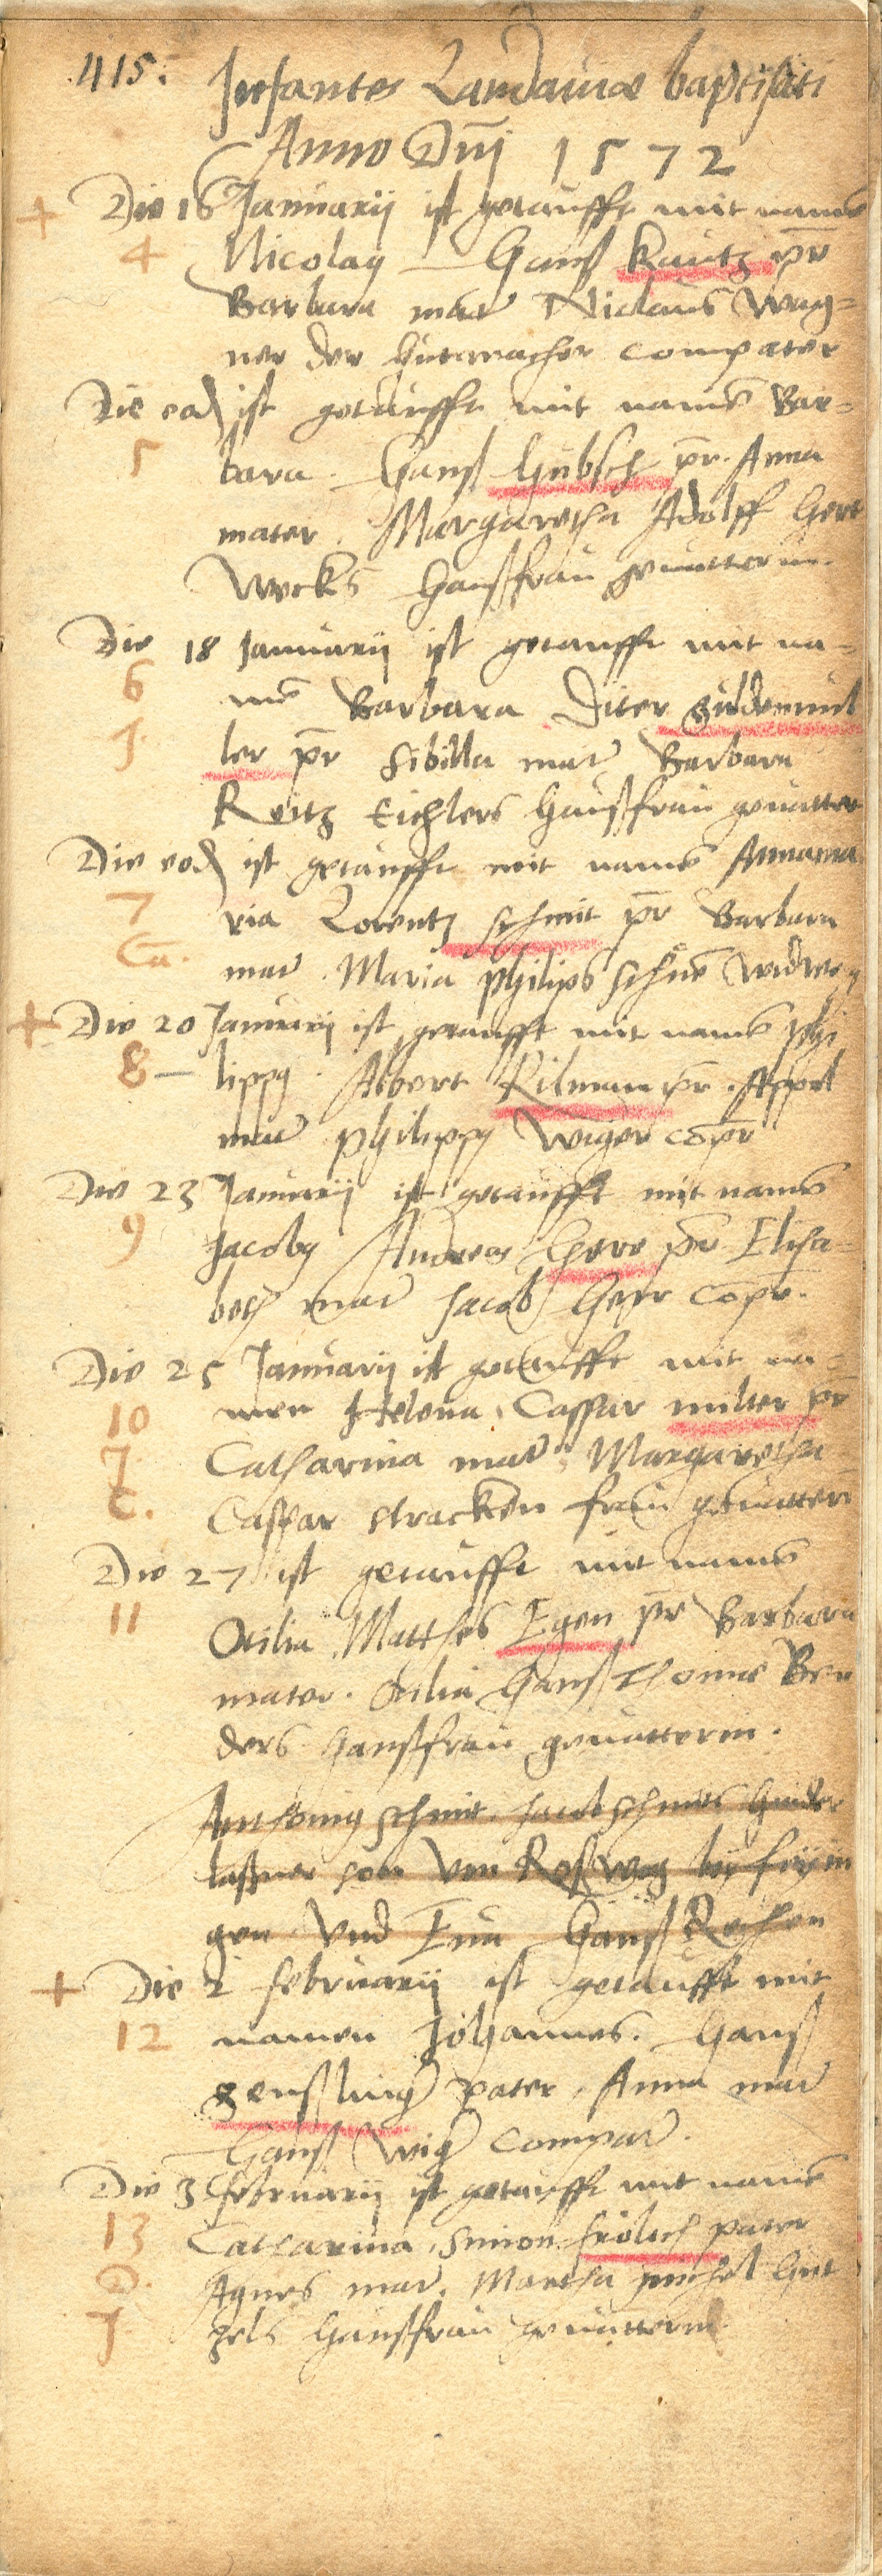 415.
Infantes Landauiae baptisati
Anno Dnj 1572
+ Die 16 Januarij ist getaufft mit namē
4 Nicolaq Hanß Kautz pr̄
Barbara mat̄ Niclaus Wag=
ner der hutmacher compater
Die eod ist getaufft mit namē Bar=
5 bara. Hanß Hübsch pr̄. Anna
mater. Margaretha Adolff Hert
Wecks haußfrau geuatterin.
Die 18 Januarij ist getaufft mit na=
6 mē Barbara Diter guldemul
J. ler pr̄ Sibilla mat̄ Barbara
Reitz Eichlers haußfrau geuatter
Die eod ist getaufft mit namē Annama
7 ria Lorentz schmit pr̄ Barbara
Ca. mat̄. Maria philips schnē widwe
+ Die 20 Januarij ist getaufft mit namē phi
8 – lippq. Albert Rilman pr̄. Appel
mat̄ philippq Wiger copr̄
Die 23 Januarij ist getaufft mit namē
9 Jacobq Andreas Herr pr̄ Elisa=
beth mat̄ Jacob Herr copr̄.
Die 25 Januarij ist getaufft mit na=
10 men Helena. Caspar miller pr̄
J. Catharina mat̄. Margaretha
C. Caspar stracken frau geuatterī
Die 27 ist getaufft mit namē
11 Otilia. Matthes Egen pr̄ Barbara
mater. Otilia Hanß Thoma Ben
ders haußfrau geuatterin.
Anthonius schmit. Jacob schmits hinder
laßner son von Roßwag bey
gen Vnd Eua Hanß
+ Die 2 februarij ist getaufft mit
12 namen Johannes. Hanß
genßling̃ pater, Anna mat̄
Hanß Wig̃ compat̄.
Die 3 februarij ist getaufft mit namē
13 Catharina, Simon frölich pater
Agnes mat̄. Martha michel Hut
J. zels haußfrau geuatterin